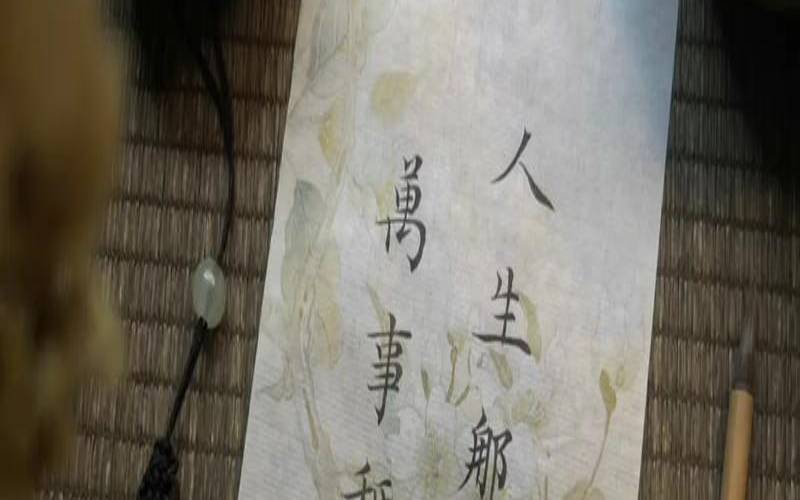 人生那
萬事